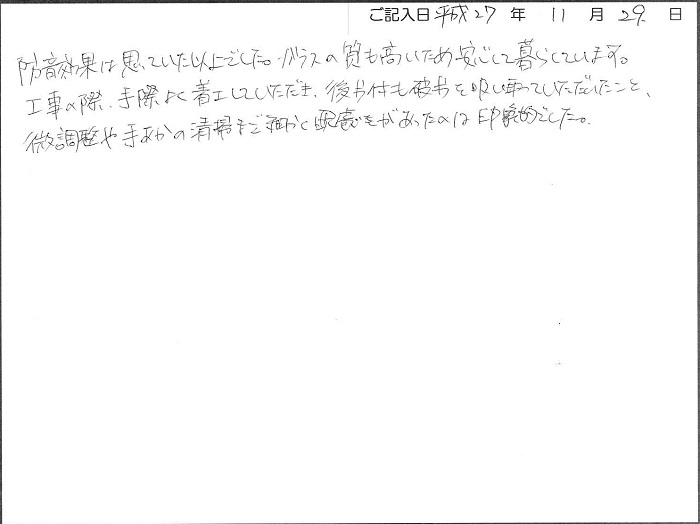 ご記入日 平成27年 11月 29日
防音効果は思っていた以上でした。ガラスの質も高いため安心して暮らしています。
工事の際、手際よく着工していただき、後片付も破片を吸い取っていただいたこと、
微調整や手あかの清掃まで細かく配慮をがあったのは印象的でした。